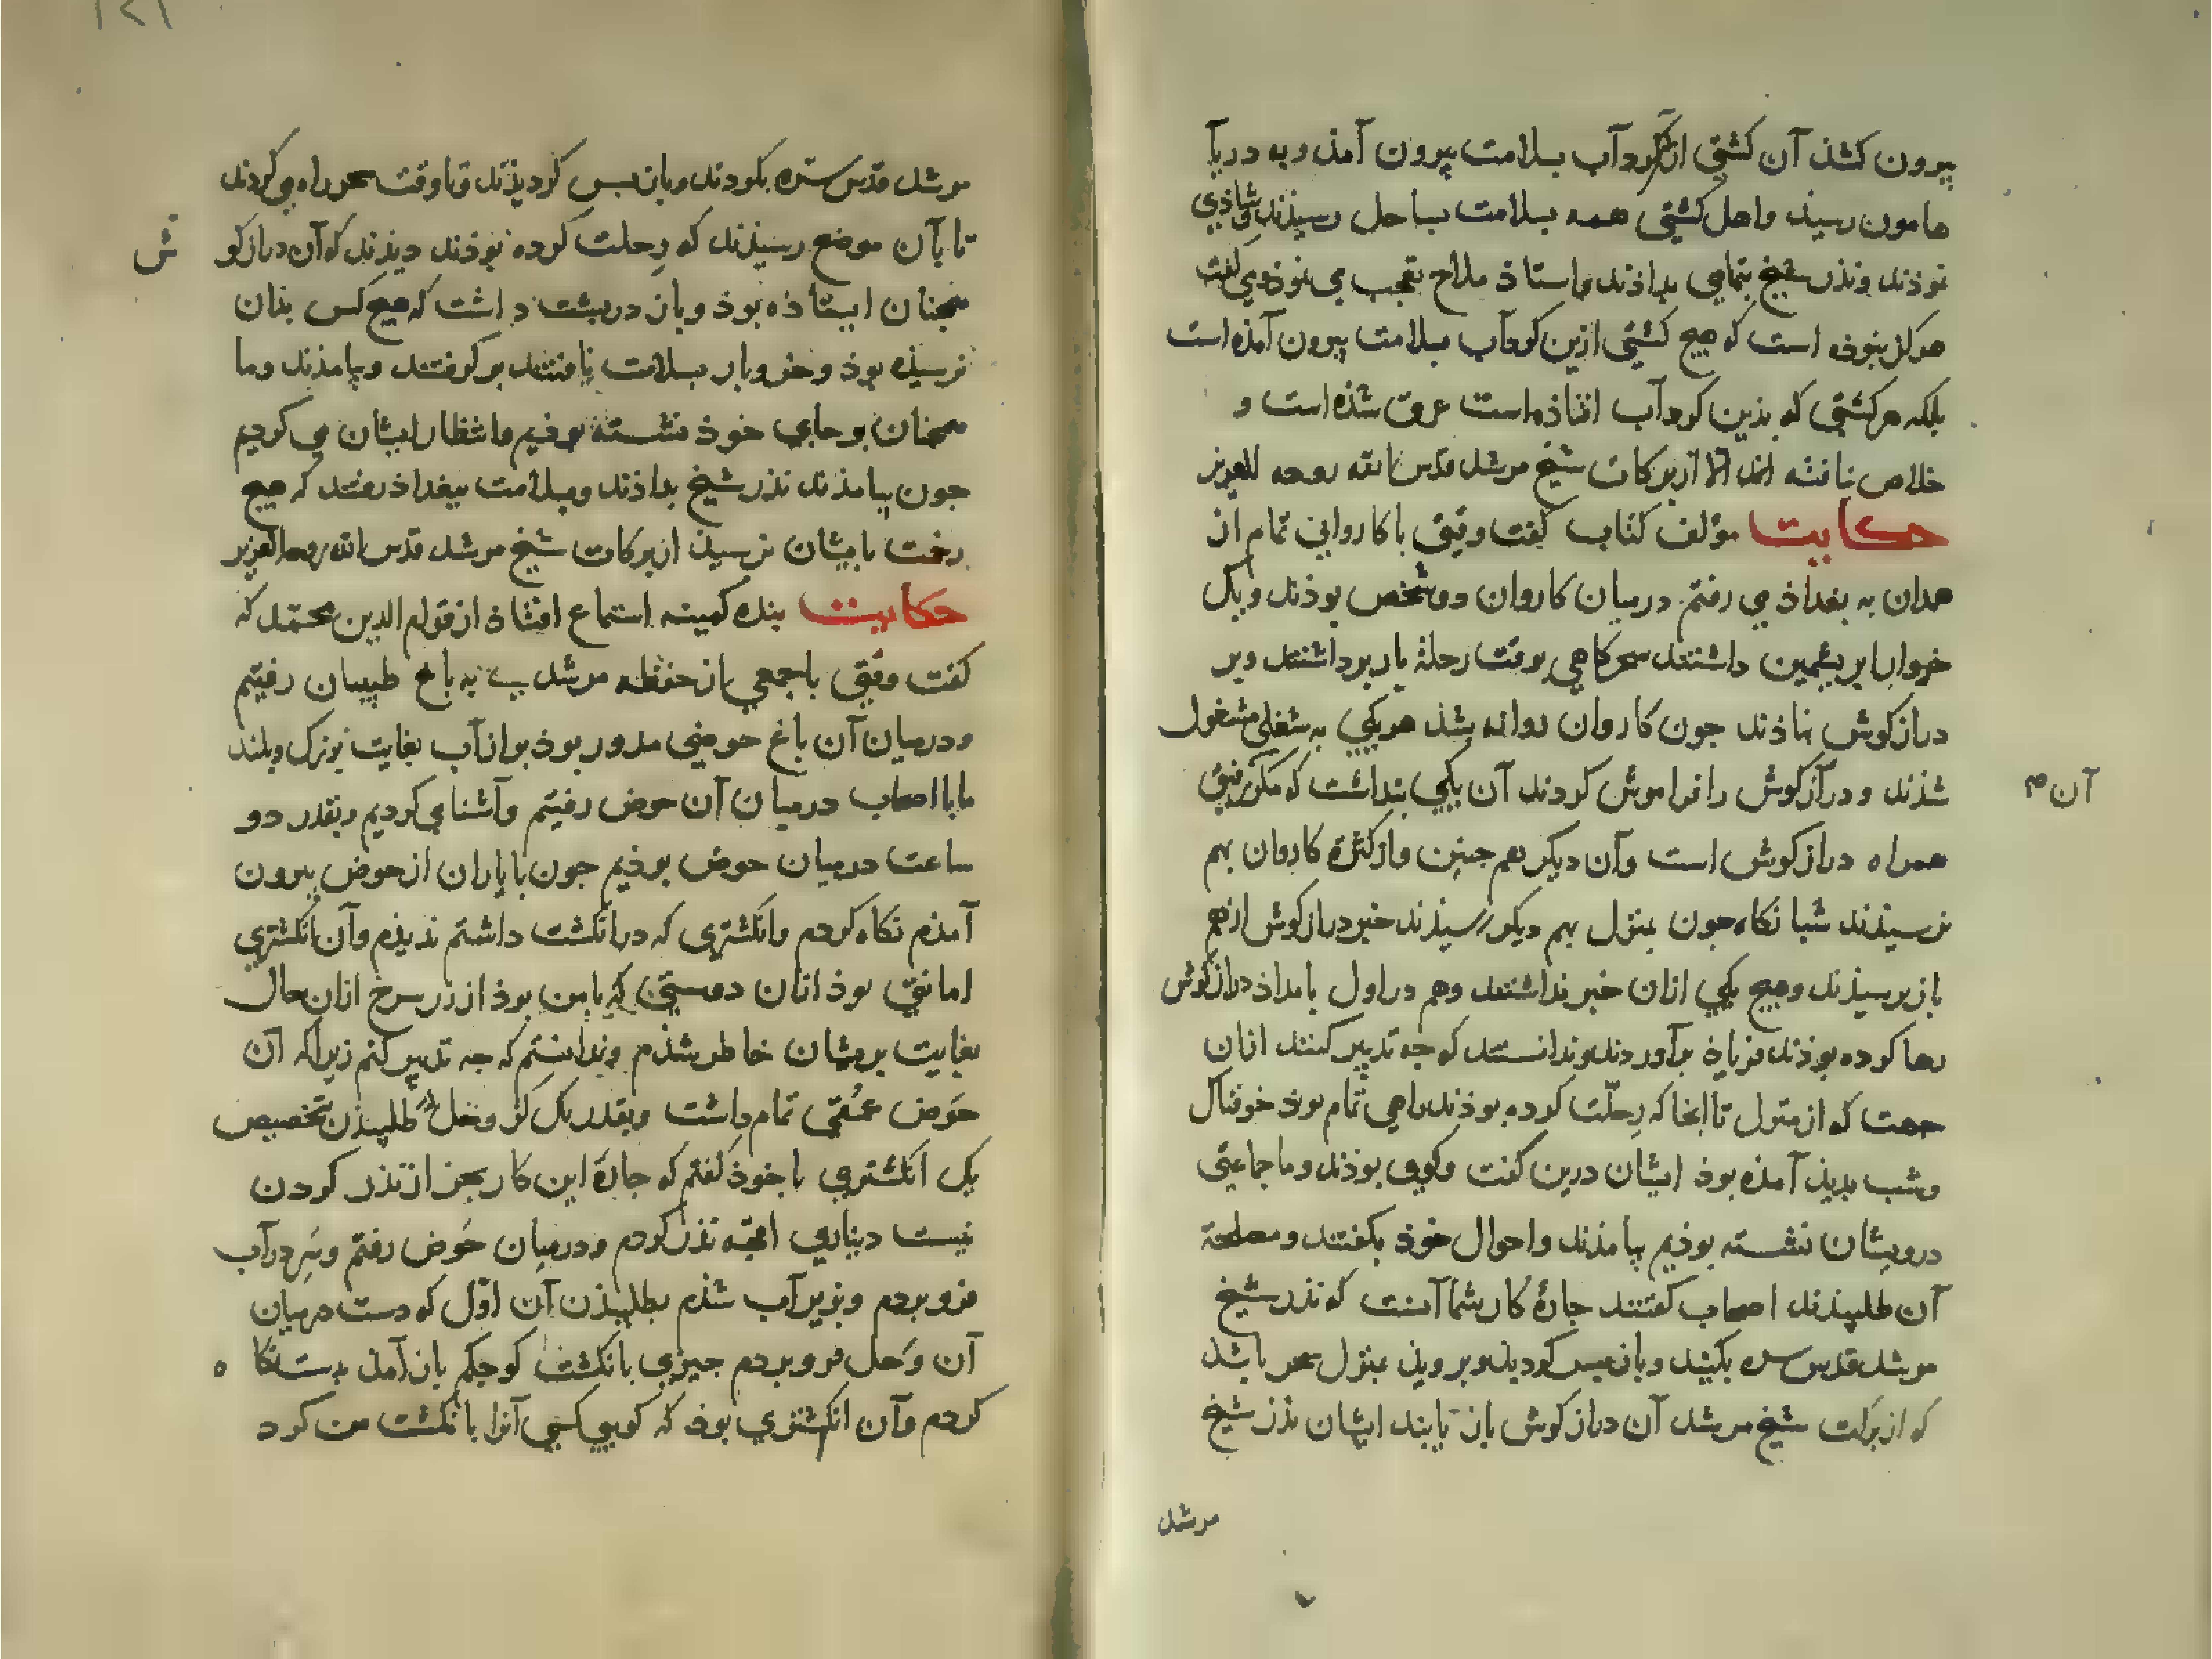 بیرون کشذ آن کشتی ازان کردآب بسلامت بیرون آمذ و به دریآ
هامون رسیذ و اهل کشتی همه بسلامت بساحل رسیذند و شاذی
نوذند و نذر شیخ بتمامی بداذند و استاذ ملاح تعجب می نوذ و می کفت
هرکز نبوذه است که هیج کشتی ازین کردآب بسلامت بیرون آمذه است
بلکه هر کشتی که بذین کردآب افتاذه است غرق شذه است و
خلاص نیافته اند الا از برکات شیخ مرشد قدس الله روحه العزیز
حکایت مؤلف کتاب کفت وقتی با کاروانی تمام از
همدان به بغداذ می رفتم درمیان کاروان دو شخص بوذند و یک
خروار ابریشمین داشتند سحرکاهی بوقت رحلة بار برداشتند و بر
درازکوش نهاذند جون کاروان روانه شذ هر یکی به شغلی مشغول
شذند و درازکوش را فراموش کردند آن یکی بنداشت که مکر رفیق
آن
همراه درازکوش است وآن دیکر هم جنین واز کثرة کاروان بهم
نرسیذند شبانکاه جون بمنزل بهم دیکر رسیذند خبر درازکوش از هم
باز برسیذند و هیج یکی ازان خبر نداشتند وهم در اول بامداذ درازکوش
رها کرده بوذند فریاذ برآوردند و ندانستند که جه تدبیر کنند ازان
جهت که از منزل تا انجا که رحلت کرده بوذند راهی تمام بوذ خوفناک
وشب بدیذ آمذه بوذ ایشان درین کفت وکوی بوذند و ما جماعتی
درویشان نشسته بوذیم بیامذند و احوال خوذ بکفتند و مصلحة
آن طلبیذند اصحاب کفتند جارۀ کار شما آنست که نذر شیخ
مرشد قدس سره بکنید و باز بس کردیذ و برویذ بمنزل سحر باشد
که از برکت شیخ مرشد آن درازکوش باز یابند ایشان نذر شیخ
مرشد
مرشد قدس سره بکردند و باز بس کردیذند و تا وقت سحر راه می کردند
تا بآن موضع رسیذند که رحلت کرده بوذند دیذند که آن درازکو
ش
همجنان ایستاذه بوذ و بار در بشت داشت که هیج کس بذان
نرسیذه بوذ و خر و بار بسلامت یافتند برکرفتند و بیامذند وما
همجنان برجای خوذ نشسته بوذیم و انتظار ایشان می کردیم
جون بیامذند نذر شیخ بداذند و بسلامت ببغداذ رفتند که هیج
زحمت بایشان نرسیذ از برکات شیخ مرشد قدس الله روحه العزیز
حکایت بنده کمینه استماع افتاذ از قوام الدین محمد که
کفت وقتی با جمعی از حفظه مرشدی به باغ طبیبان رفتیم
ودرمیان آن باغ حوضی مدور بوذ بر از آب بغایت بزرک وبلند
ما با اصحاب درمیان آن حوض رفتیم و آشنا می کردیم و بقدر دو
ساعت درمیان حوض بوذیم جون با یاران از حوض بیرون
آمذم نکاه کردم و انکشتری که در انکشت داشتم ندیذم وآن انکشتری
امانتی بوذ ازان دوستی که با من بوذ از زر سرخ ازان حال
بغایت بریشان خاطر شذم وندانستم که جه تدبیر کنم زیراکه آن
حوض عمقی تمام داشت و بقدر یک کز وحل طلبیذن بتخصیص
یک انکشتری با خوذ کفتم که جارۀ این کار بجز از نذر کردن
نیست دیناری اقجه نذر کردم و درمیان حوض رفتم وسر درآب
فرو بردم و بزیرآب شذم بطلبیذن آن اول که دست درمیان
آن وحل فرو بردم جیزی بانکشت کوجکم باز آمذ بدست نکا ه
کردم وآن انکشتری بوذ که کویی کسی آنرا بانکشت من کرد